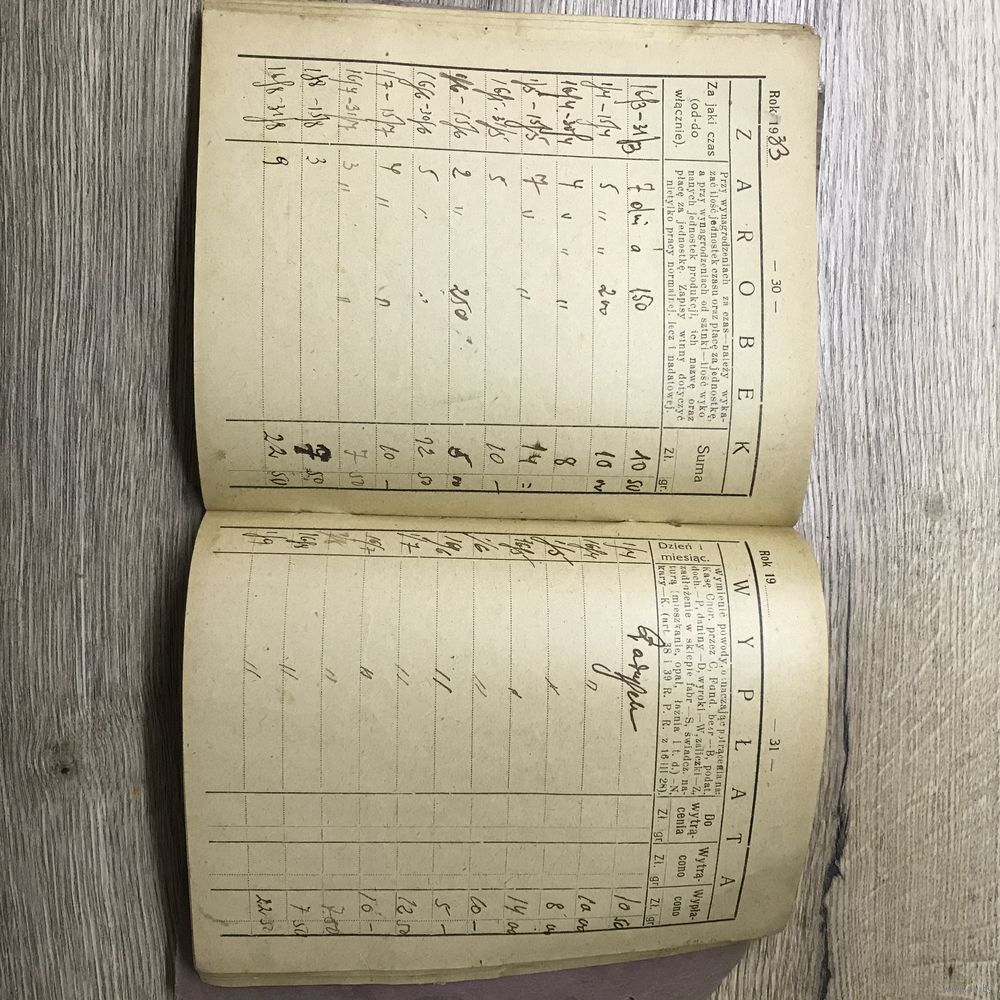 — 30 —
Rok 1933
ZAROBEK
Za jaki czas
(od-do
włącznie).
Przy wynagrodzeniach za czas—należy wyka-
zać ilość jednostek czasu oraz płacę za jednostkę,
a przy wynagrodzeniach od sztuki—ilość wyko
nanych jednostek produkcji, ich nazwę oraz
płacę za jednostkę. Zapisy winny dotyczyć
nietylko pracy normalnej, lecz i nadatowej.
Suma
Zł. gr.
16/3-31/3 7 dni a 150 10 50
1/4-15/4 5 " " 200 10 00
16/4-30/4 4 " " " 8
1/5-15/5 7 " " 14 =
16/5-31/5 5 10 -
1/6-15/6 2 " 250 5 00
16/6-30/6 5 " " 12 50
1/7-15/7 4 " " 10 -
16/7-31/7 3 " " 7 50
1/8-15/8 3 7 50
16/8-31/8 9 22 50
— 31 —
Rok 19
WYPŁATA
Dzień i
miesiąc.
Wymienić powody, oznaczając potrącenia na:
Kasę Chor. przez C, Fund. bezr.—B, podat.
doch.—P, daniny—D, wyroki—W, zaliczki—Z,
zadłużenie w sklepie fabr—S, świadcz. na-
turą (mieszkanie, opał, łaźnia i t. d.)—N,
kary—K. (art. 38 i 39 R. P. R. z 16 III 28).
Do
wytrą-
cenia
Zł. gr
Wytrą-
cono
Zł. gr
Wypła-
cono
Zł. gr
1/4 10 50
16/4 " 10 00
1/5 " 8 00
16/5 " 14 00
1/6 " 10 -
16/6 " 5 -
1/7 " 12 50
16/7 " 10 -
" 7 50
16/8 " 7 50
1/9 " 22 50